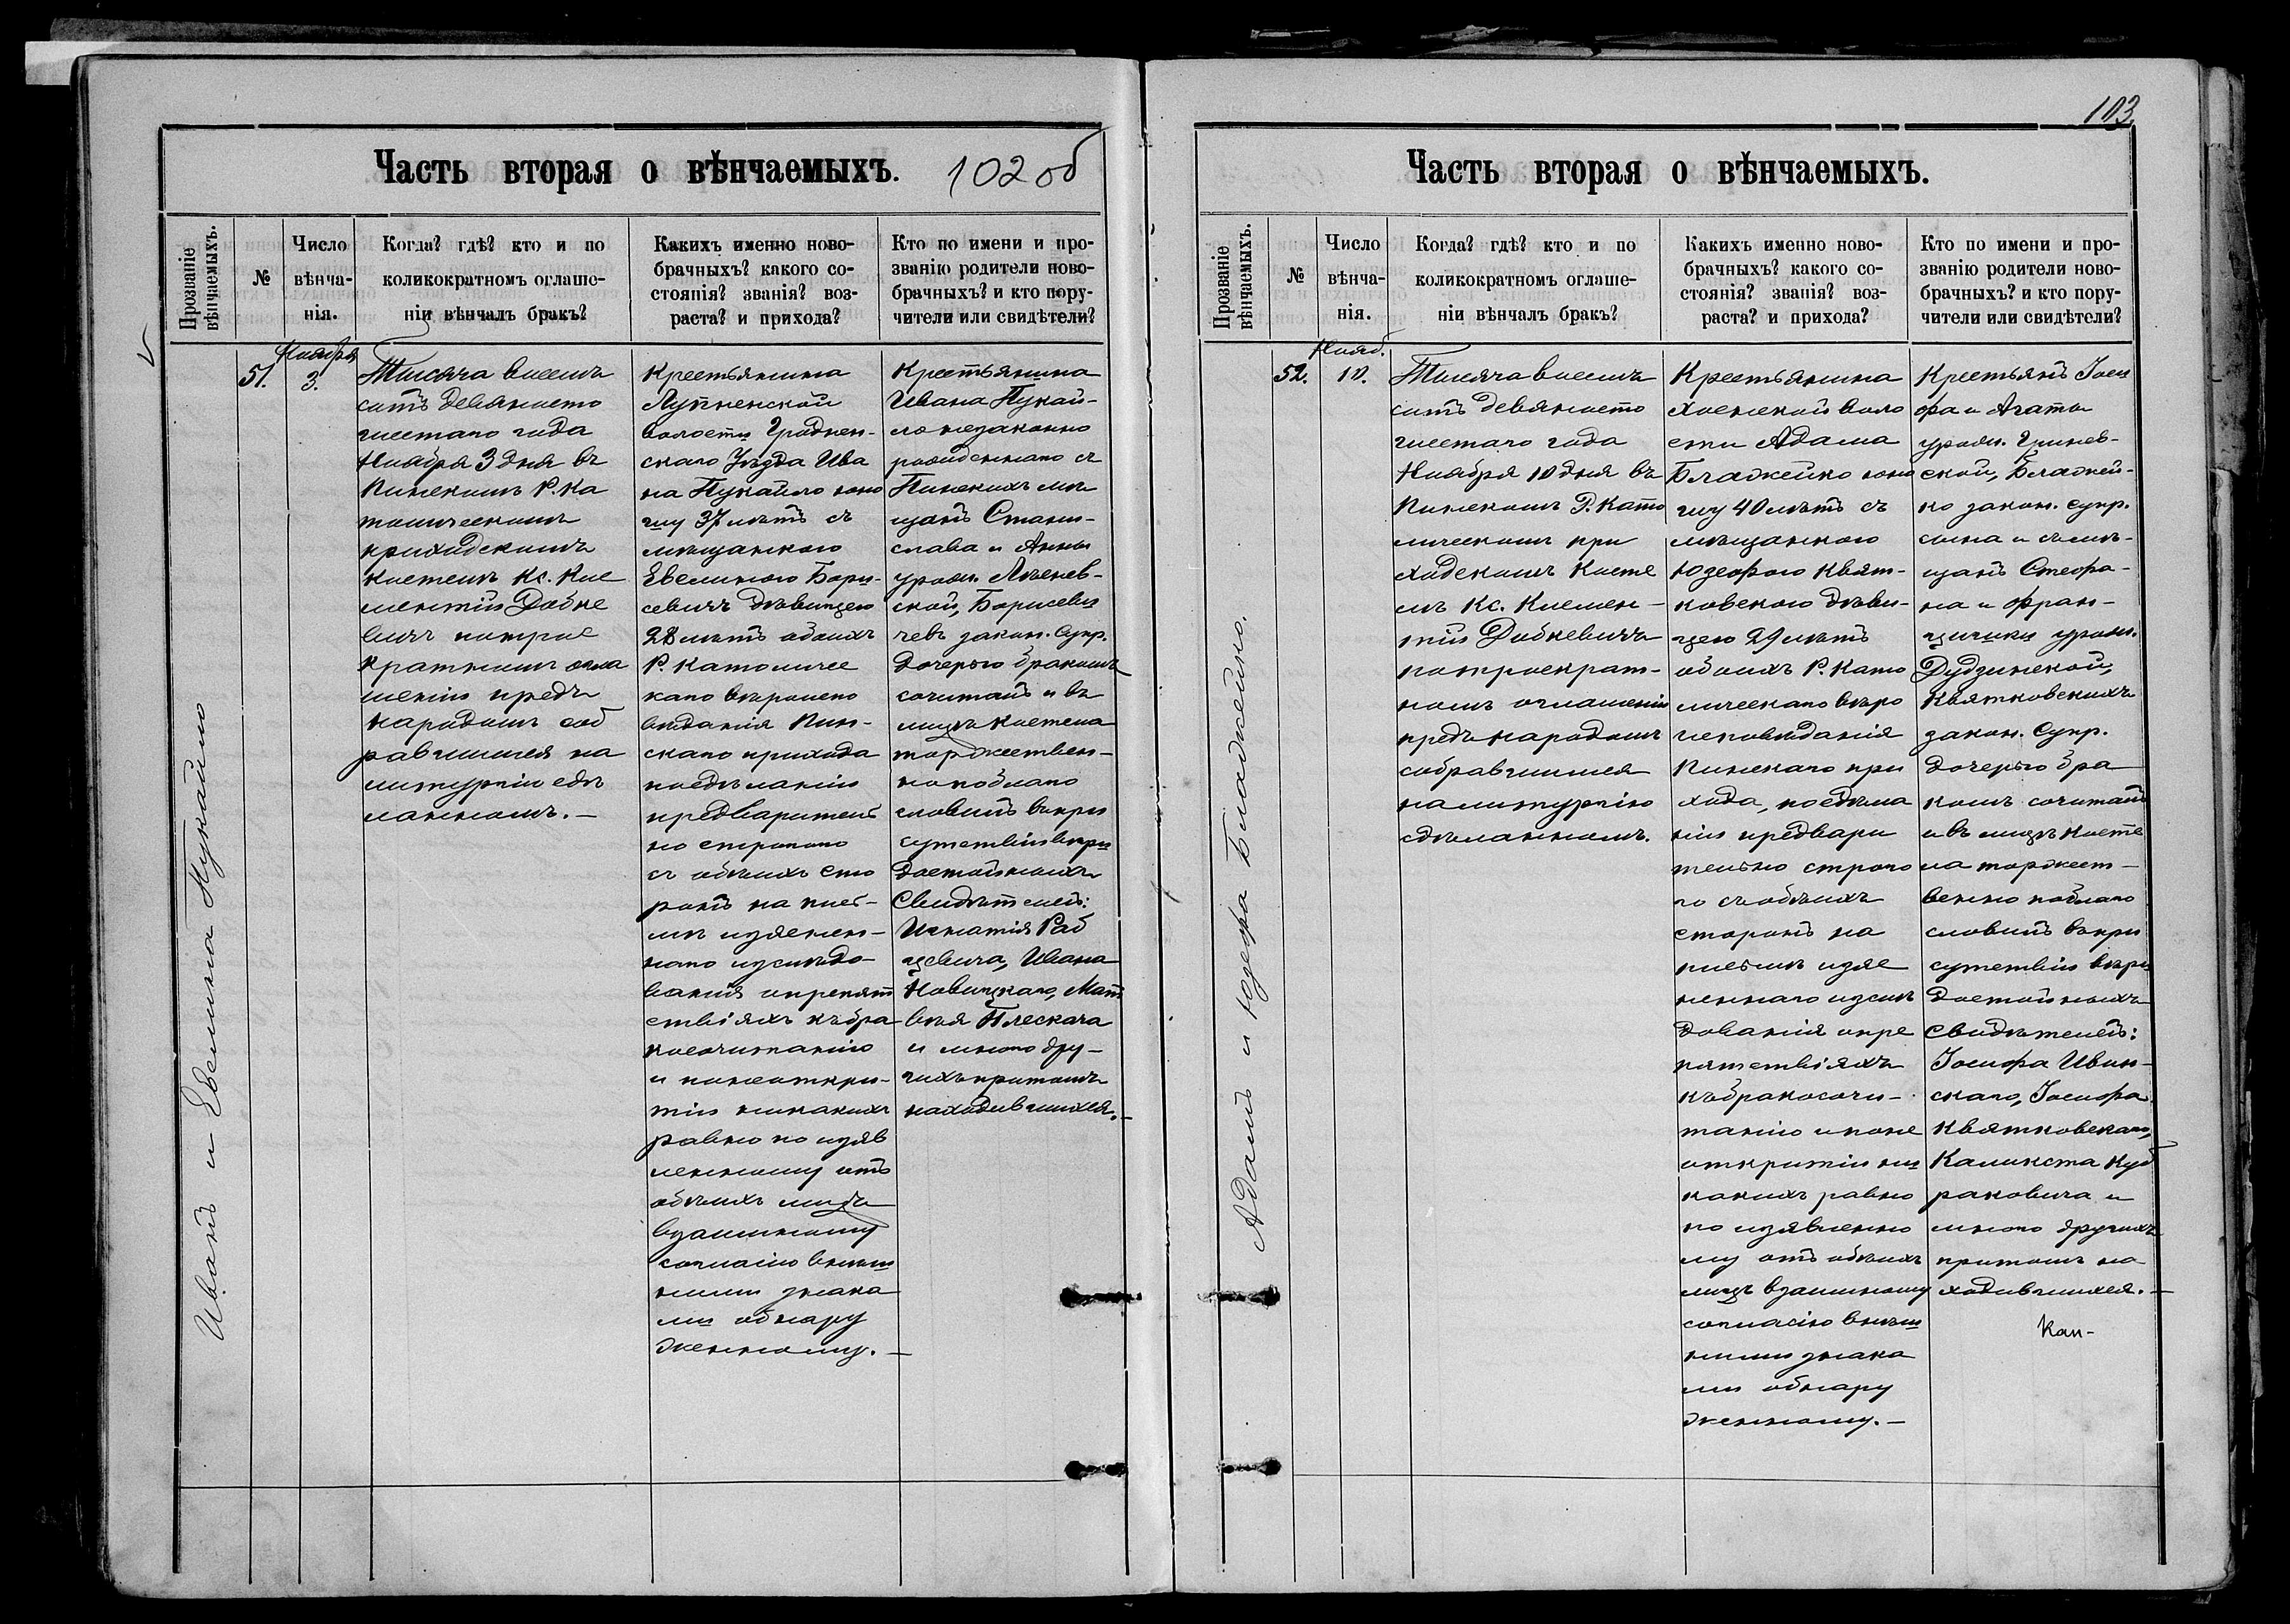 Часть вторая о вѣнчаемыхъ.
102 об
Прозваніе
вѣнчаемыхъ.
№
Число
вѣнча-
нія.
Когда? гдѣ? кто и по
коликократномъ оглаше-
ніи вѣнчалъ бракъ?
Какихъ именно ново-
брачныхъ? какого со-
стоянія? званія? воз-
раста? и прихода?
Кто по имени и про-
званію родители ново-
брачныхъ? и кто пору-
чители или свидѣтели?
Иванъ и Евелина Пукайло
51.
Ноября
3.
Тысяча восемь
сотъ девяносто
шестаго года
Ноября 3 дня въ
Пинскомъ Р. Ка
толическомъ
приходскомъ
костелѣ Кс. Кле
ментій Добке
вичъ по трое
кратномъ огла
шеніи предъ
народомъ соб
равшимся на
литургію сдѣ
ланномъ. —
Крестьянина
волости Гроднен-
скаго Уѣзда Ива
на Пукайло юно
шу 37 лѣтъ съ
мѣщанкою
Евелиною Бори-
севичъ дѣвицею
28 лѣтъ обоихъ
Р. Католичес
каго вѣроиспо
вѣданія Пин-
скаго прихода
по сдѣланіи
предварител
но строгаго
съ обѣихъ сто
ронъ на пис-
мѣ изяснен-
наго изслѣдо-
ванія о препят
ствіяхъ къ бра
косочитанію
и по неоткры-
тіи никакихъ
равно по изяв
ленному отъ
обѣихъ лицъ
взаимному
согласію внѣш
ними знака
ми обнару
женному. —
Крестьянина
Ивана Пукай-
ло незаконно
рожденнаго съ
Пинскихъ мѣ
щанъ Стани-
слава и Анны
урожд. Лѣснев-
ской, Борисеви
чевъ закон. супр.
дочерью бракомъ
сочиталъ и въ
лицѣ костела
торжествен-
но поблаго
словилъ въ при
сутствіи вѣри
достойныхъ
Свидѣтелей:
Игнатія Раб
цевича, Ивана
Новицкаго, Мат
вѣя Плескача
и много дру-
гихъ притомъ
находившихся. —
103.
Часть вторая о вѣнчаемыхъ.
Прозваніе
вѣнчаемыхъ.
№
Число
вѣнча-
нія.
Когда? гдѣ? кто и по
коликократномъ оглаше-
ніи вѣнчалъ бракъ?
Какихъ именно ново-
брачныхъ? какого со-
стоянія? званія? воз-
раста? и прихода?
Кто по имени и про-
званію родители ново-
брачныхъ? и кто пору-
чители или свидѣтели?
Адамъ и Юзефа Блажейко.
52.
Нояб.
10.
Тысяча восемь
сотъ девяносто
шестаго года
Ноября 10 дня въ
Пинскомъ Р. Като
лическомъ при
ходскомъ Косте
лѣ Кс. Клемен-
тій Добкевичъ
по троекрат-
номъ оглашеніи
предъ народомъ
собравшимся
на литургію
сдѣланномъ.
Крестьянина
Хоенской воло
сти Адама
Блажейко юно
шу 40 лѣтъ съ
мѣщанкою
Юзефою Квят-
ковскою дѣви-
цею 29 лѣтъ
обоихъ Р. Като
лическаго вѣро
исповѣданія
Пинскаго при
хода, по сдѣла
ніи предвари
тельно строго
го съ обѣихъ
сторонъ на
писмѣ изяс
неннаго изслѣ
дованія о пре
пятствіяхъ
къ бракосочи-
танію и по не
открытіи ни
какихъ равно
по изявленно
му отъ обѣихъ
лицъ взаимному
согласію внѣш
ними знака
ми обнару
женному. —
Крестьянъ Іоси
фа и Агаты
урожд. Гринев-
ской, Блажей-
ко закон. супр.
сына и съ мѣ-
щанъ Стефа-
на и Фран-
цишки урожд.
Дудзинской,
Квятковскихъ
закон. супр.
дочерью бра
комъ сочиталъ
и въ лицѣ косте
ла торжест-
венно поблаго
словилъ въ при
сутствіи вѣри
достойныхъ
Свидѣтелей:
Іосифа Ивин-
скаго, Іосифа
Квятковскаго,
Каликста Куд
раковича и
много другихъ
притомъ на
ходившихся. —